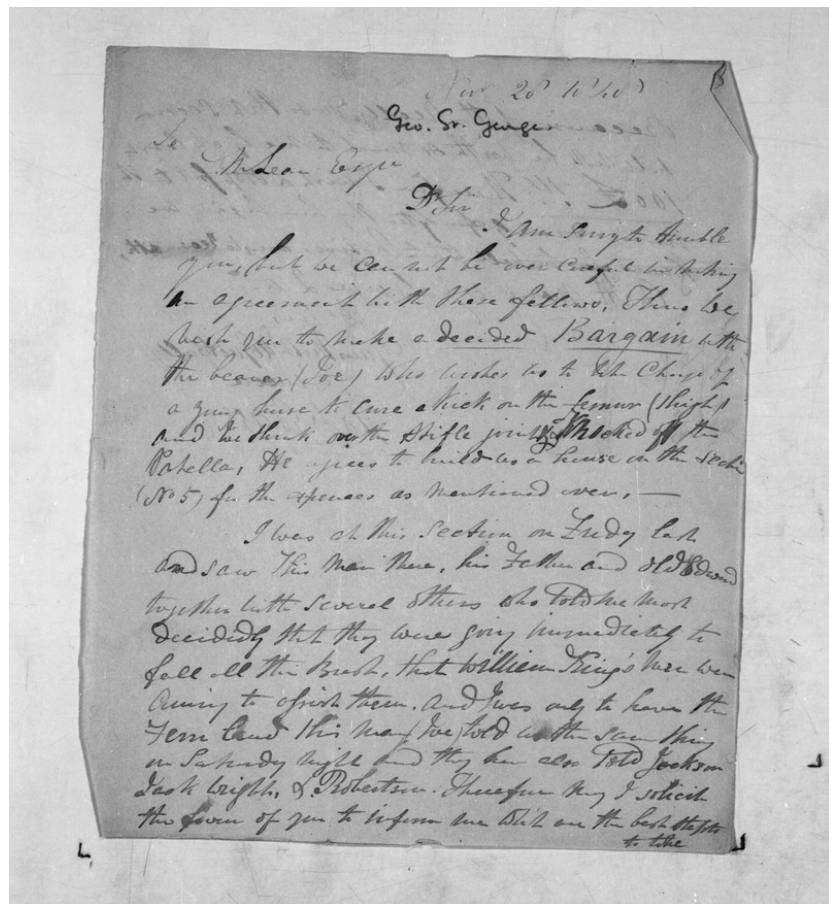 Nov. 20th
Geo. Sr. George
To
McLean Esqre
Dr Sir
I am sorry to trouble
you, but we can not be over careful in making
an agreement with these fellows, Thus we
wish you to make a decided Bargain with
the bearer (Joe) who wishes us to take Charge of
a young horse to cure a kick on the femur (thigh)
and we think over the stifle joint, knocked off the
Patella, He agrees to build us a house on the section
(No 5) for the expences as mentioned over, —
I was at this Section on Friday last
and saw This Man there, his Father and old Edward
together with several others who Told me most
decidedly that they were going immediately to
fell all the Bush, that William King's Men were
coming to assist them, and I was only to have the
Fern land this man (Joe) told us the same thing
on Saturday night and they have also Told Jackson
Jack Wright, & Robertson. Therefore may I solicit
the favor of you to inform me which are the best steps
to take